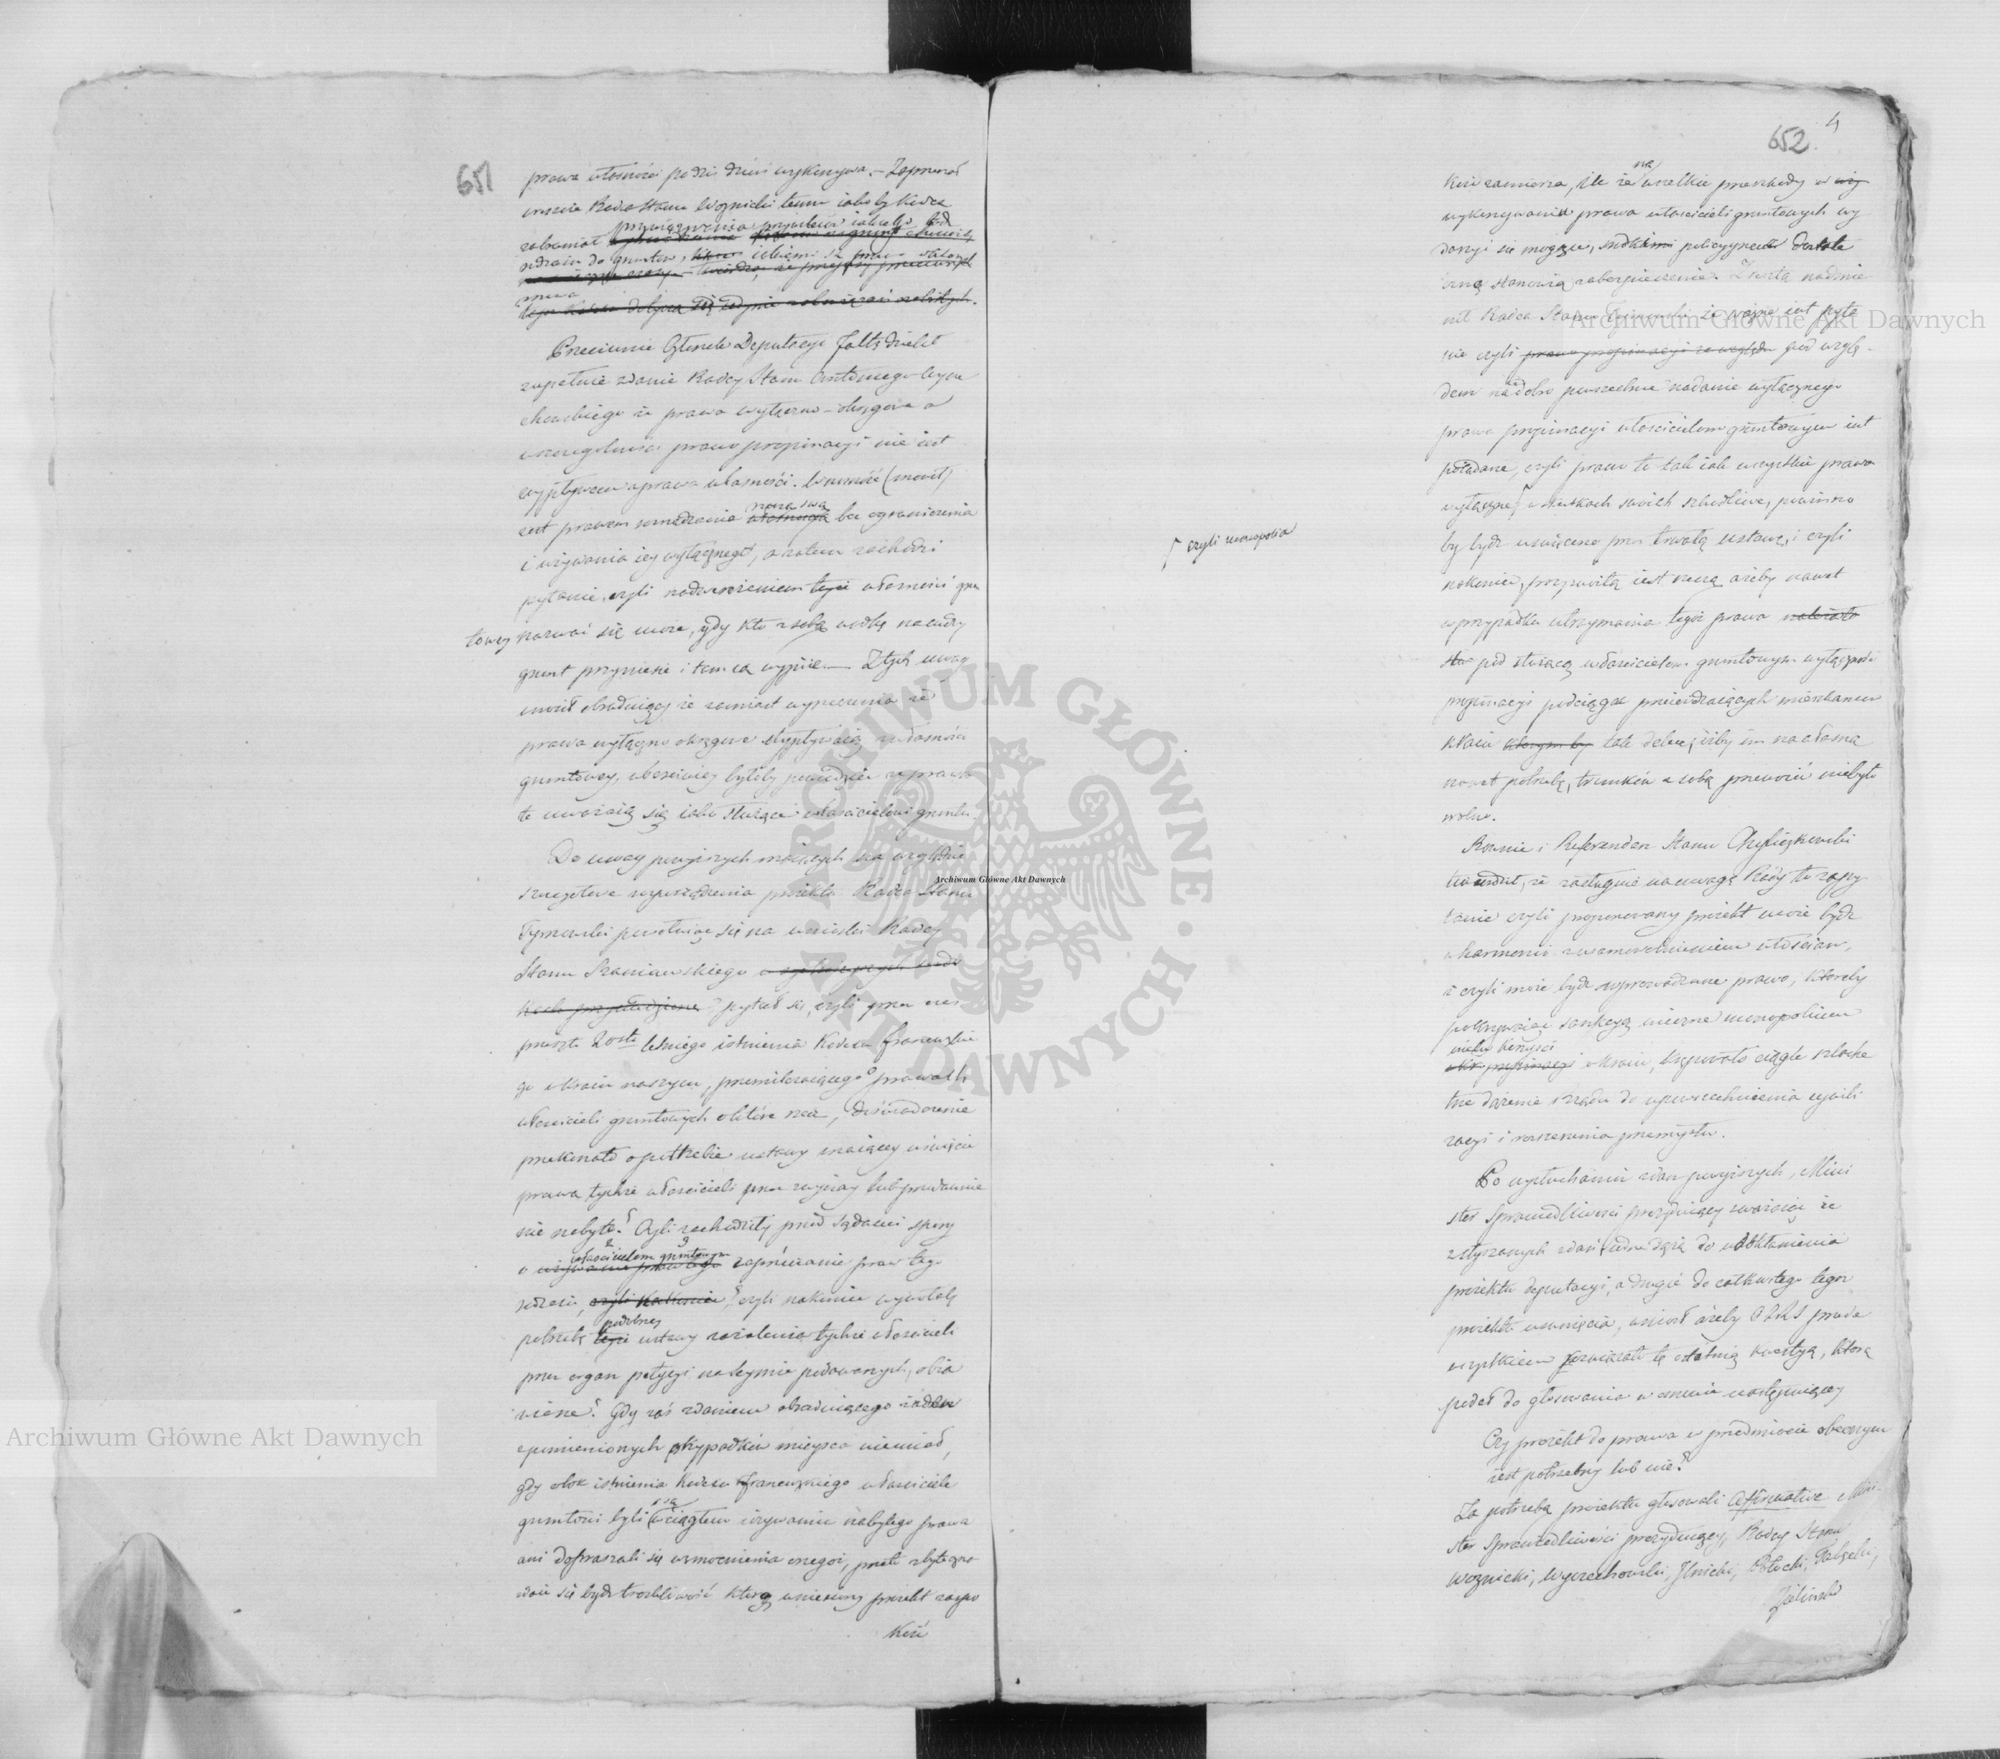 651
prawa własności po dziś dzień wykonywa. – Zaprzeczał
wreście Radca Stanu Woźnicki temu iakoby Kodex
zabraniał przywiązywania przywileiów iakiego bądź
rodzaiu do gruntów, iakiemi są prawo
Przeciwnie Członek Deputacyi Faltz dzielił
zupełnie zdanie Radcy Stanu Antoniego Wyczechowskiego
chowskiego że prawo wyłączno-okręgowe a
w szczególności prawo propinacyi nie iest
wypływem z prawa własności. Własność (mówił)
iest prawem rozrządzania rzeczą swą bez ograniczenia
i używania iey wyłącznego, a zatem zachodzi
pytanie, czyli nadwerężeniem teyże własności grun
towey nazwać się może, gdy kto z sobą wódkę na cudzy
grunt przyniesie i tam ią wypiie. — Z tych uwag
wnosił obradujący że zamiast wyrzeczenia że
prawa wyłączno okręgowe wypływaią z własności
gruntowey, właściwiey byłoby powiedzieć że prawa
te uważaią się iako służące właścicielowi gruntu.
Do uwag powyższych maiących na względzie
szczegółowe rozporządzenia proiektu Radca Stanu
Tymowski powołuiąc się na wnioski Radcy
Stanu Staniawskiego
pytał się, czyli przez cza
przeszło 20sto letniego istnienia Kodexu francuzkie
go w kraiu naszym, przemilczaiącego o prawach
właścicieli gruntowych o które rzecz, doświadczenie
przekonało o potrzebie ustawy maiącey uświęcić
prawa tychże właścicieli przez zwyczay lub przedawnie
nie nabyte? Czyli zachodziły przed sądami spory
o właścicielom gruntowym zaprzeczanie praw tego
rodzaiu, czyli nakoniec wywołały
potrzebę podobney ustawy zażalenia tychże właścicieli
przez organ petycyi na Seymie podawanych, obia
wione? Gdy zaś zdaniem obraduiącego żaden
z pomienionych przypadków mieysca niemiał,
gdy obok istnienia Kodexu francuzkiego właściciele
gruntowi byli są w ciągłem używaniu nabytego prawa
ani dopraszali się wzmocnienia onegoż, przeto zbyteczną
zdaie się bydź troskliwość którą wniesiony proiekt zaspo
koić
652
4
koić zamierza, ile że na wszelkie przeszkody w
wykonywaniu prawa właścicieli gruntowych wy
darzyć się mogące, środkami policyynemi dostate
czną stanowią zabezpieczenie. Zresztą nadmie
nił Radca Stanu Tymowski że ważne iest pyta
nie czyli prawo propinacyi ze względu pod wzglę-
dem na dobro powszechne nadanie wyłącznego
prawa propinacyi właścicielom gruntowym iest
pożądane, czyli prawo te tak iak wszystkie prawa
wyłączne ⌈ w skutkach swoich szkodliwe, powinno
⌈ czyli monopolia
by bydź uświęcone przez trwałą ustawę, i czyli
nakoniec, przyzwoitą iest rzeczą ażeby nawet
w przypadku utrzymania tegoż prawa
pod służącą właścicielom gruntowym wyłączność
propinacyi podciągać przeieżdżaiących mieszkańców
kraiu którym by tak dalece, iżby im na własną
nawet potrzebę, trunków z sobą przewozić niebyło
wolno.
Równie i Referendarz Stanu
twierdził, że zasługuie na uwagę Rady to zapy
tanie czyli proponowany proiekt może bydź
w harmonii z usamowolnieniem włościan,
i czyli może bydź wprowadzane prawo, któreby
pokrywaiąc sankcyą wieczne monopolium
w kraiu, krępowało ciągle szlache
tne dążenie Rządu do upowszechnienia cywili
zacyi i rozszerzenia przemysłu.
Po wysłuchaniu zdań powyższych, Mini
ster Sprawiedliwości prezyduiący zważaiąc że
z słyszanych zdań iedne dążą do
proiektu deputacyi, a drugie do całkowitego tegoż
proiektu usunięcia, wniósł ażeby ORRS przede
wszystkiem rozwiązało tę ostatnią kwestyą, którą
podał do głosowania w osnowie następuiącey
Czy proiekt do prawa w przedmiocie obecnym
iest potrzebny lub nie?
Za potrzebą proiektu głosowali affirmative Mini-
ster Sprawiedliwości prezyduiący, Radcy Stanu
Woźnicki, Wyczechowski, Jlnicki, Płocki,
Zieliński
Archiwum Główne Akt Dawnych
Archiwum Główne Akt Dawnych
Archiwum Główne Akt Dawnych
ARCHIWUM GŁÓWNE · AKT DAWNYCH ·